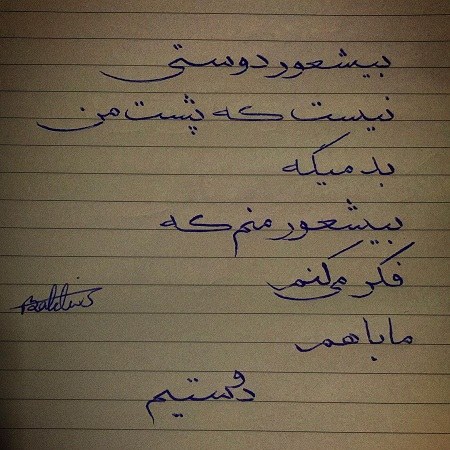 بیشعور دوستی
نیست که پشت من
بد میگه
بیشعور منم که
فکر می‌کنم
ما با هم
دوستیم